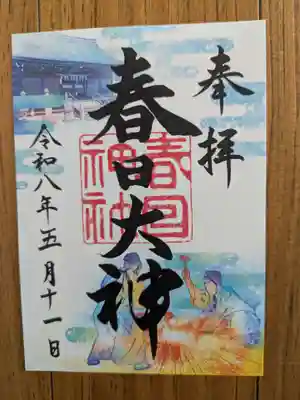 奉拝
春日大神
春日
神社
令和八年五月十一日